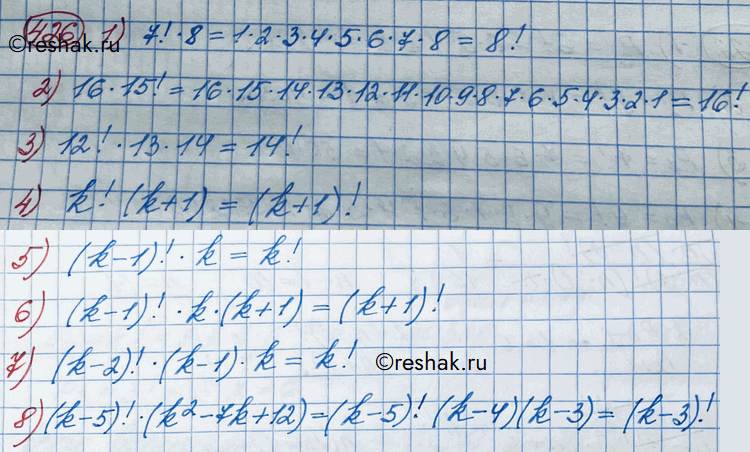 426 1) 7! · 8 = 1 · 2 · 3 · 4 · 5 · 6 · 7 · 8 = 8!
©reshak.ru
2) 16 · 15! = 16 · 15 · 14 · 13 · 12 · 11 · 10 · 9 · 8 · 7 · 6 · 5 · 4 · 3 · 2 · 1 = 16!
3) 12! · 13 · 14 = 14!
4) k! (k+1) = (k+1)!
5) (k-1)! · k = k!
6) (k-1)! · k · (k+1) = (k+1)!
7) (k-2)! · (k-1) · k = k!
©reshak.ru
8) (k-5)! · (k²-7k+12) = (k-5)! (k-4)(k-3) = (k-3)!